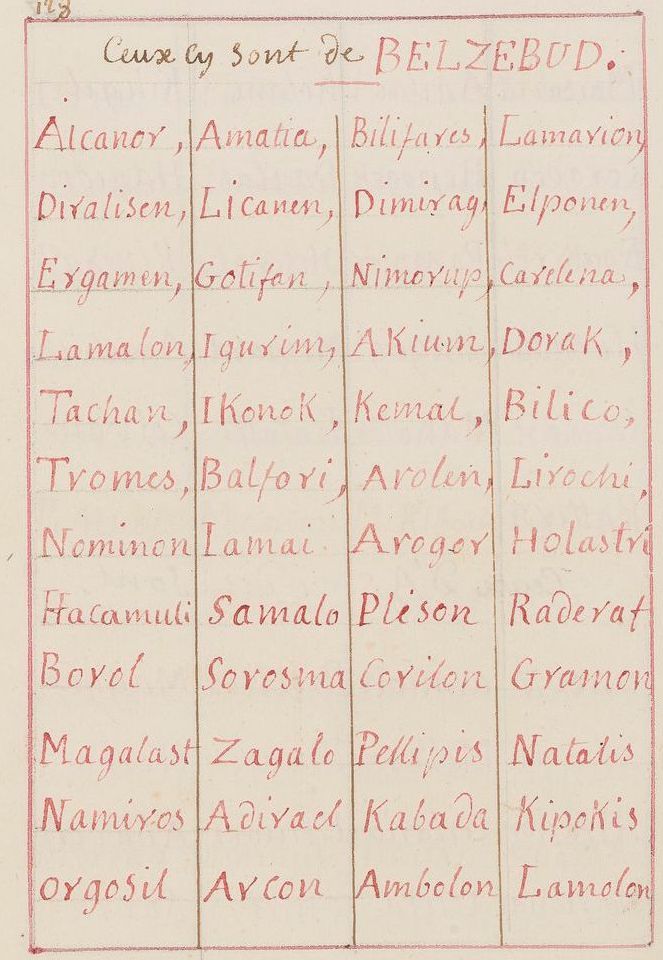 123
Ceux cy sont de BELZEBUD.
Alcanor, Amatia, Bilifares, Lamarion,
Diralisen, Licanen, Dimirag, Elponen,
Ergamen, Gotifan, Nimorup, Carelena,
Lamalon, Igurim, AKium, DoraK,
Tachan, IKonoK, Kemal, Bilico,
Tromes, Balfori, Arolen, Lirochi,
Nominon Iamai Arogor Holastri
Hacamuli Samalo Pleson Raderaf
Borol Sorosma Corilon Gramon
Magalast Zagalo Pellipis Natalis
Namiros Adirael Kabada KipoKis
Orgosil Arcon Ambolon Lamolon